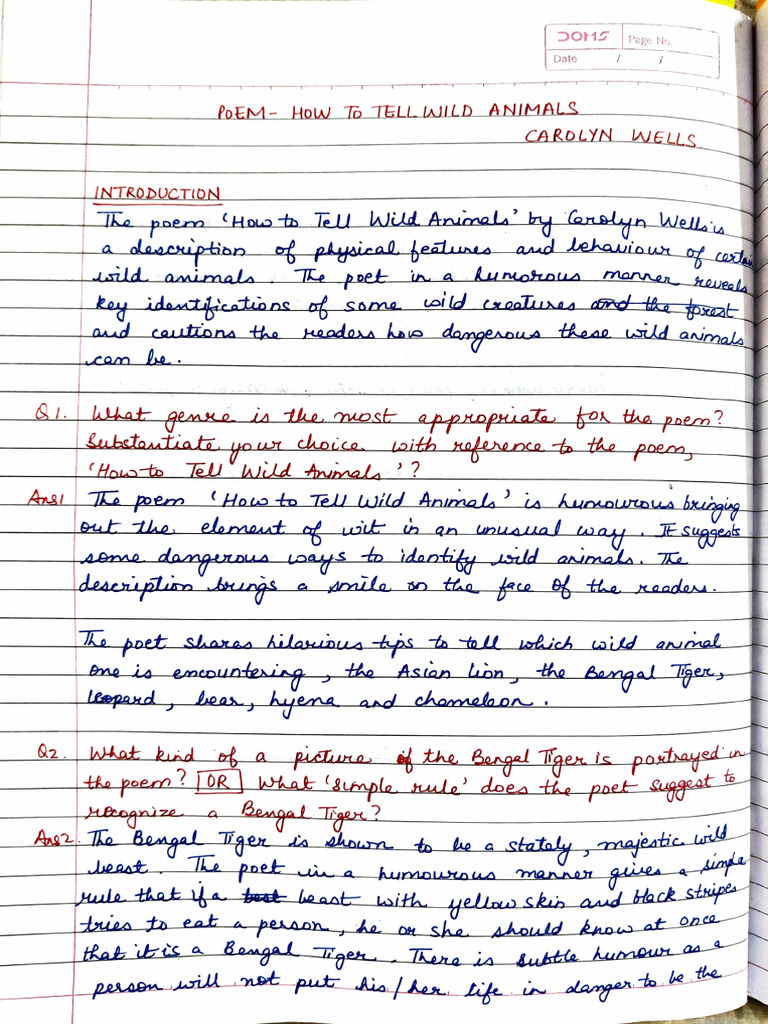 DOMS
Page No.
Date / /
POEM- HOW TO TELL WILD ANIMALS
CAROLYN WELLS
INTRODUCTION
The poem 'How to Tell Wild Animals' by Carolyn Wells is
a description of physical features and behaviour of certain
wild animals. The poet in a humorous manner reveals
key identifications of some wild creatures and the forest
and cautions the readers how dangerous these wild animals
can be.
Q1. What genre is the most appropriate for the poem?
Substantiate your choice with reference to the poem,
'How to Tell Wild Animals'?
Ans1 The poem 'How to Tell Wild Animals' is humourous bringing
out the element of wit in an unusual way. It suggests
some dangerous ways to identify wild animals. The
description brings a smile on the face of the readers.
The poet shares hilarious tips to tell which wild animal
one is encountering, the Asian lion, the Bengal Tiger,
leopard, bear, hyena and chameleon.
Q2. What kind of a picture of the Bengal Tiger is portrayed in
the poem? OR What 'simple rule' does the poet suggest to
recognize a Bengal Tiger?
Ans2. The Bengal Tiger is shown to be a stately, majestic wild
beast. The poet in a humourous manner gives a simple
rule that if a best beast with yellow skin and black stripes
tries to eat a person, he or she should know at once
that it is a Bengal Tiger. There is subtle humour as a
person will not put his/her life in danger to be the